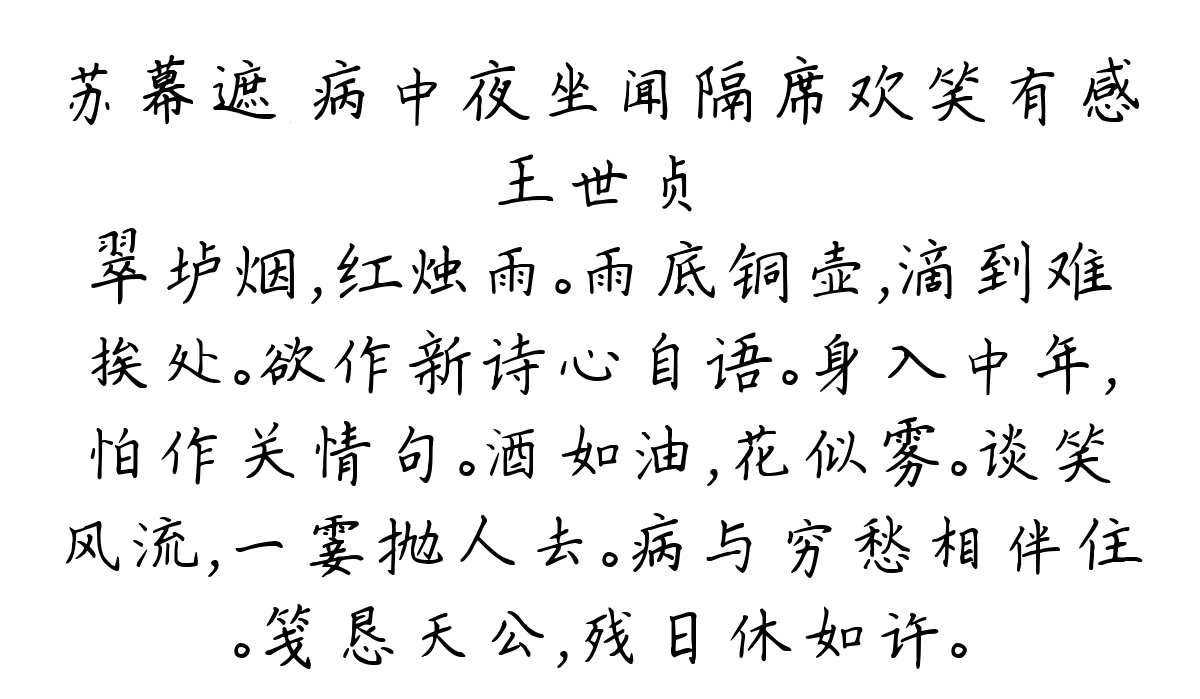 苏幕遮 病中夜坐闻隔席欢笑有感
王世贞
翠垆烟,红烛雨。雨底铜壶,滴到难
挨处。欲作新诗心自语。身入中年,
怕作关情句。酒如油,花似雾。谈笑
风流,一霎抛人去。病与穷愁相伴住
。笺恳天公,残日休如许。